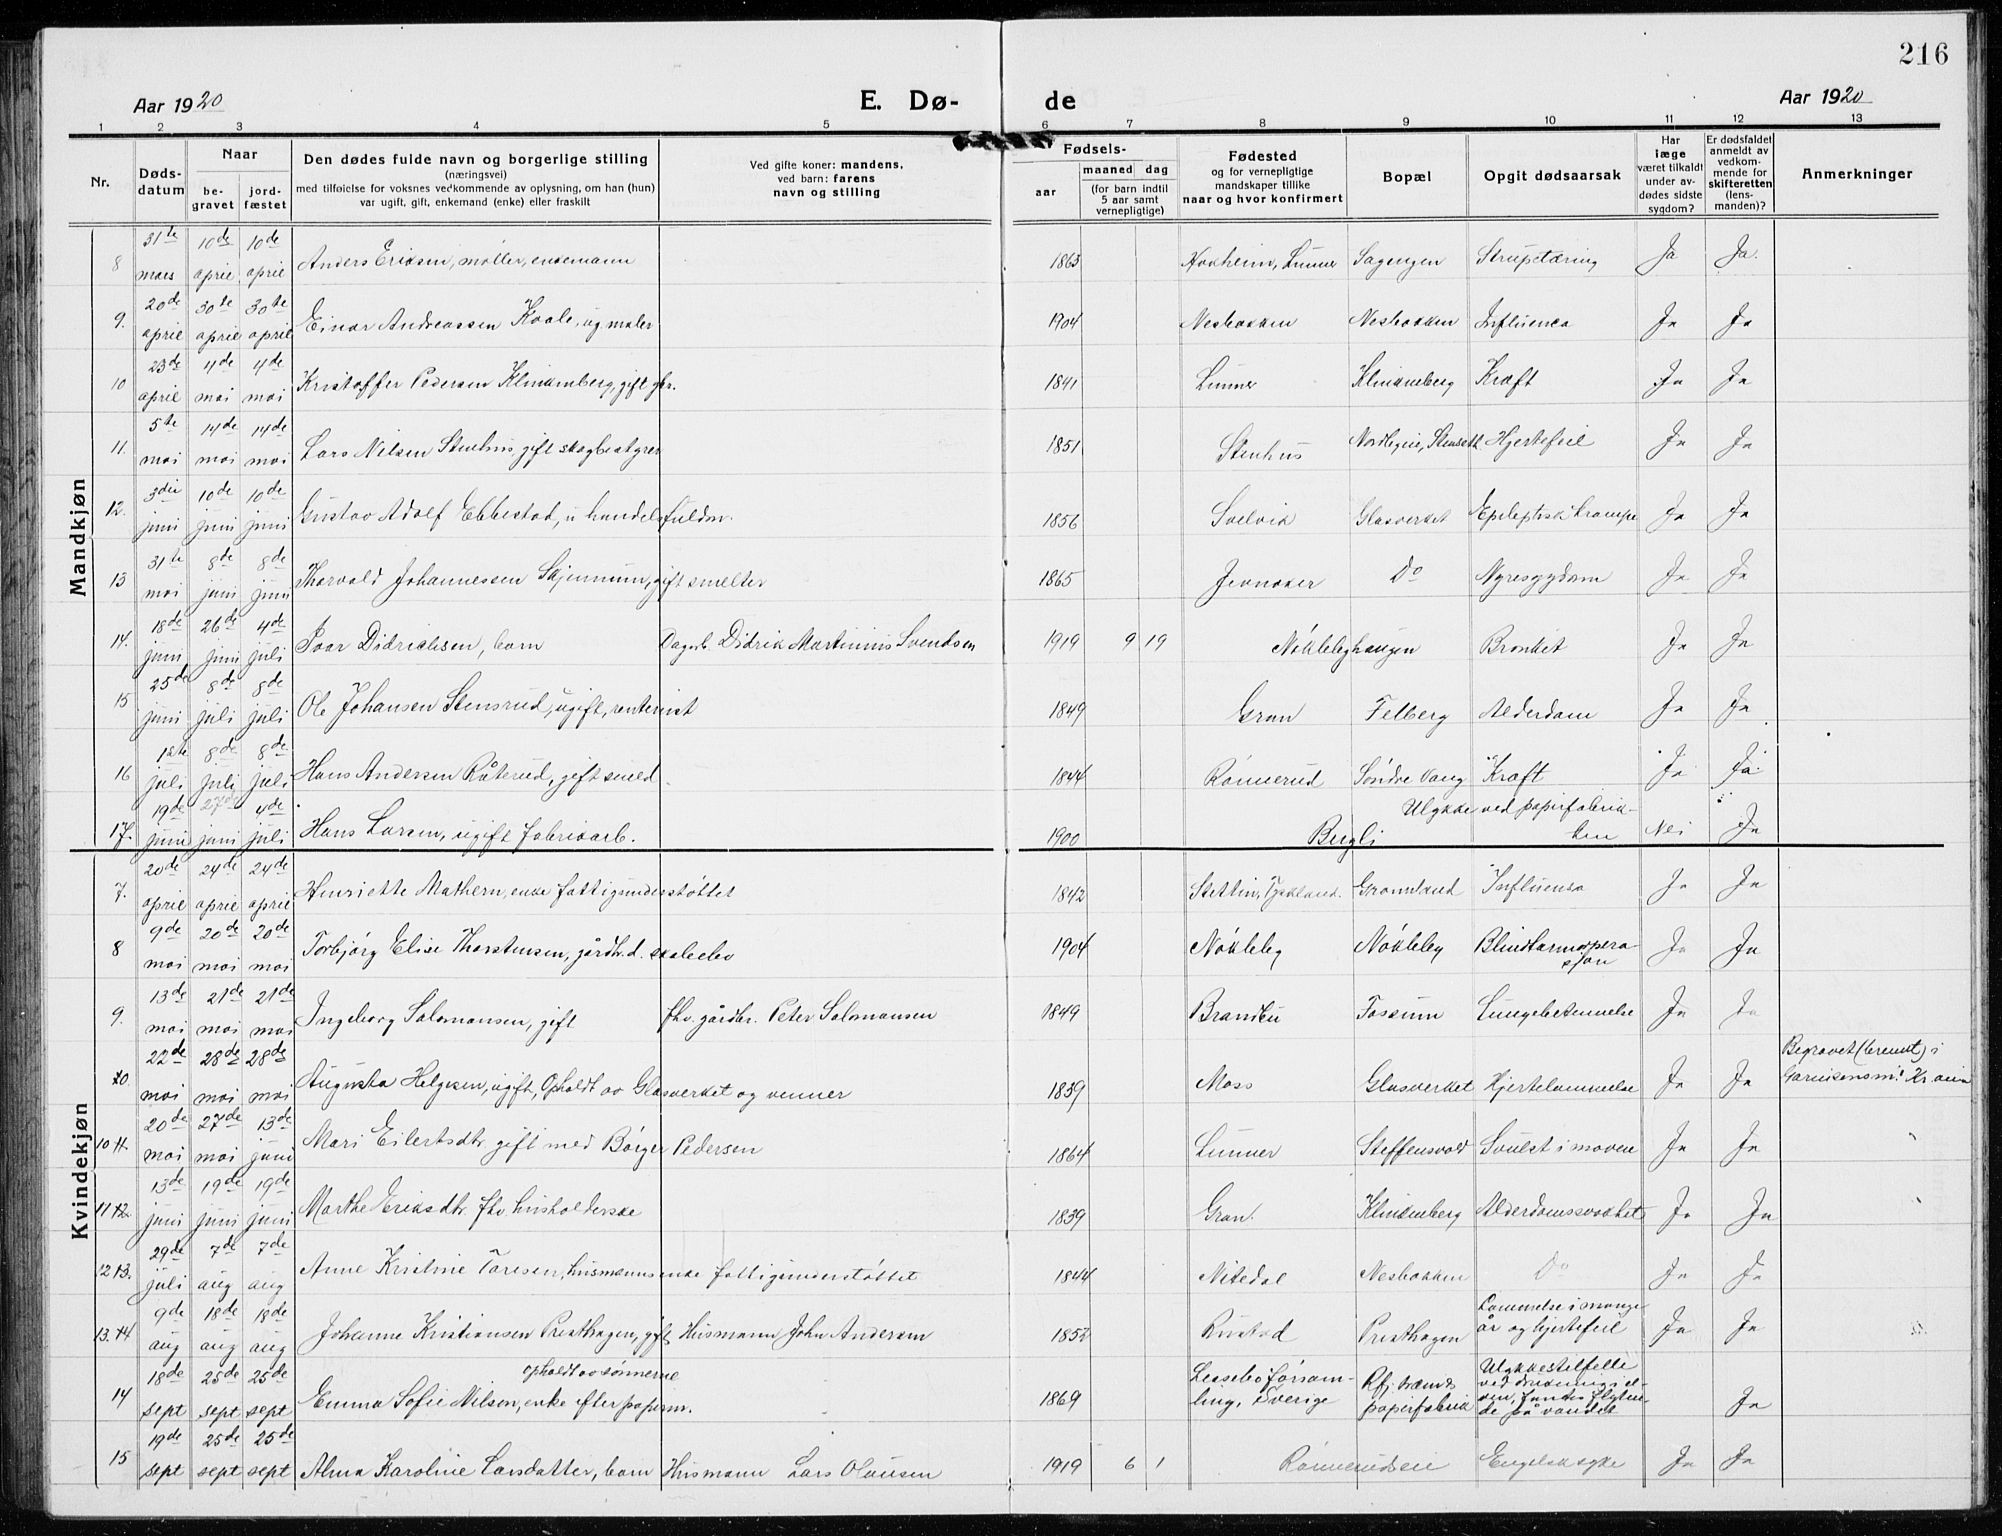 216
Aar 1920 E. Dø- de Aar 1920
1 2 3 4 5 6 7 8 9 10 11 12 13
Nr. Døds-datum Naar be-gravet jord-fæstet Den dødes fulde navn og borgerlige stilling (næringsvei) med tilføielse for voksnes vedkommende av oplysning, om han (hun) var ugift, gift, enkemand (enke) eller fraskilt Ved gifte koner: mandens, ved barn: farens navn og stilling Fødsels- aar maaned dag (for barn indtil 5 aar samt vernepligtige) Fødested og for vernepligtige mandskaper tillike naar og hvor konfirmert Bopæl Opgit dødsaarsak Har læge været tilkaldt under av-dødes sidste sygdom? Er dødsfaldet anmeldt av vedkom-mende for skifteretten (lens-manden)? Anmerkninger
Mandkjøn
8 31te mars 10de april 10de april Anders Eriksen, møller, enkemann 1863 Hovheim, Lunner Sagengen Strupetæring Ja Ja.
9. 20de april 30te april 30te april Einar Andreassen Kvale, ug maler 1904 Nesbakken Nesbakken Influenca Ja Ja
10 23de april 4de mai 4de mai Kristoffer Pedersen Klinkenberg, gift gbr. 1841 Lunner Klinkenberg Kræft Ja Ja
11. 5te mai 14de mai 14de mai Lars Nilsen Stenhus, gift skogbestyrer 1851 Stenhus Nordbyeie, Stenseth Hjertefeil Ja Ja
12. 3die juni 10de juni 10de juni Gustav Adolf Ebbestad, u handelsfuldm. 1856 Svelvik Glasverket Epileptisk krampe Ja Ja
13 31te mai 8de juni 8de juni Thorvald Johannessen Skjennum, gift smelter 1865 Jevnaker Do Nyresygdom Ja Ja
14. 18de juni 26de juni 4de juli Ivar Didriksen, barn Dagarb. Didrik Martinius Svendsen 1919 9 19 Nøkleby haugen Bronkit Ja Ja
15 25de juni 8de juli 8de juli Ole Johansen Stensrud, ugift, rentenist 1849 Gran Felberg Alderdom Ja Ja
16 1ste juli 8de juli 8de juli Hans Andersen Råterud, gift smed 1844 Rønnerud Søndre Vang Kræft Ja Ja.
17. 19de juni 27de juni 4de juli Hans Larsen, ugift fabrikarb. 1900 Bergli Ulykke ved papirfabrik-ken Nei Ja
Kvindekjøn
7. 20de april 24de april 24de april Henriette Mathern, enke fattigunderstøttet 1842 Stettin, Tyskland. Grønnland Influensa Ja Ja
8 9de mai 20de mai 20de mai Torbjørg Elise Thorstensen, gårdbr.d. skoleelev 1904 Nøkleby Nøkleby Blindtarmopera sjon Ja Ja
9. 13de mai 21de mai 21de mai Ingeborg Salomonsen, gift fhv. gårdbr. Peter Salomonsen 1849 Brandbu Fossum Lungebetennelse Ja Ja
10. 22de mai 28de mai 28de mai Augusta Helgesen, ugift, Opholdt av Glasverket og venner 1839 Moss Glasverket Hjertelammelse Ja Ja Begravet (brennt) i Garnisonsm. Kr.ania
10 11. 20de mai 27de mai 13de juni Mari Eilertsdtr. gift med Børger Pedersen 1864 Lunner Steffensvold Svulst i maven Ja Ja
11 12. 13de juni 19de juni 19de juni Marthe Eriksdtr. fhv. husholderske 1839 Gran. Klinkenberg Alderdomssvakhet Ja Ja
12 13. 29de juli 7de aug 7de aug Anne Kristine Toresen, husmannsenke fattigunderstøttet 1844 Nitedal Nesbakken Do Ja Ja
13. 14 9de aug 18de aug 18de aug Johanne Kristiansen Presthagen, gift Husmann John Andersen 1852 Rustad Presthagen Lammelse i mange år og hjertefeil Ja Ja
14 18de sept 25de sept 25de sept opholdt av sønnerne Emma Sofie Nilson, enke efter papirm. 1869 Lessebo førsam-ling, Sverige Rfj. træmds papirfabrik Ulykkestilfelle ved drukning i el-ven, fantes flyten-de på vandet Ja
15 19de sept 25de sept 25de sept Alma Karoline Larsdatter, barn Husmann Lars Olausen 1919 6 1 Rønnerudseie Engelsk syke Ja Ja